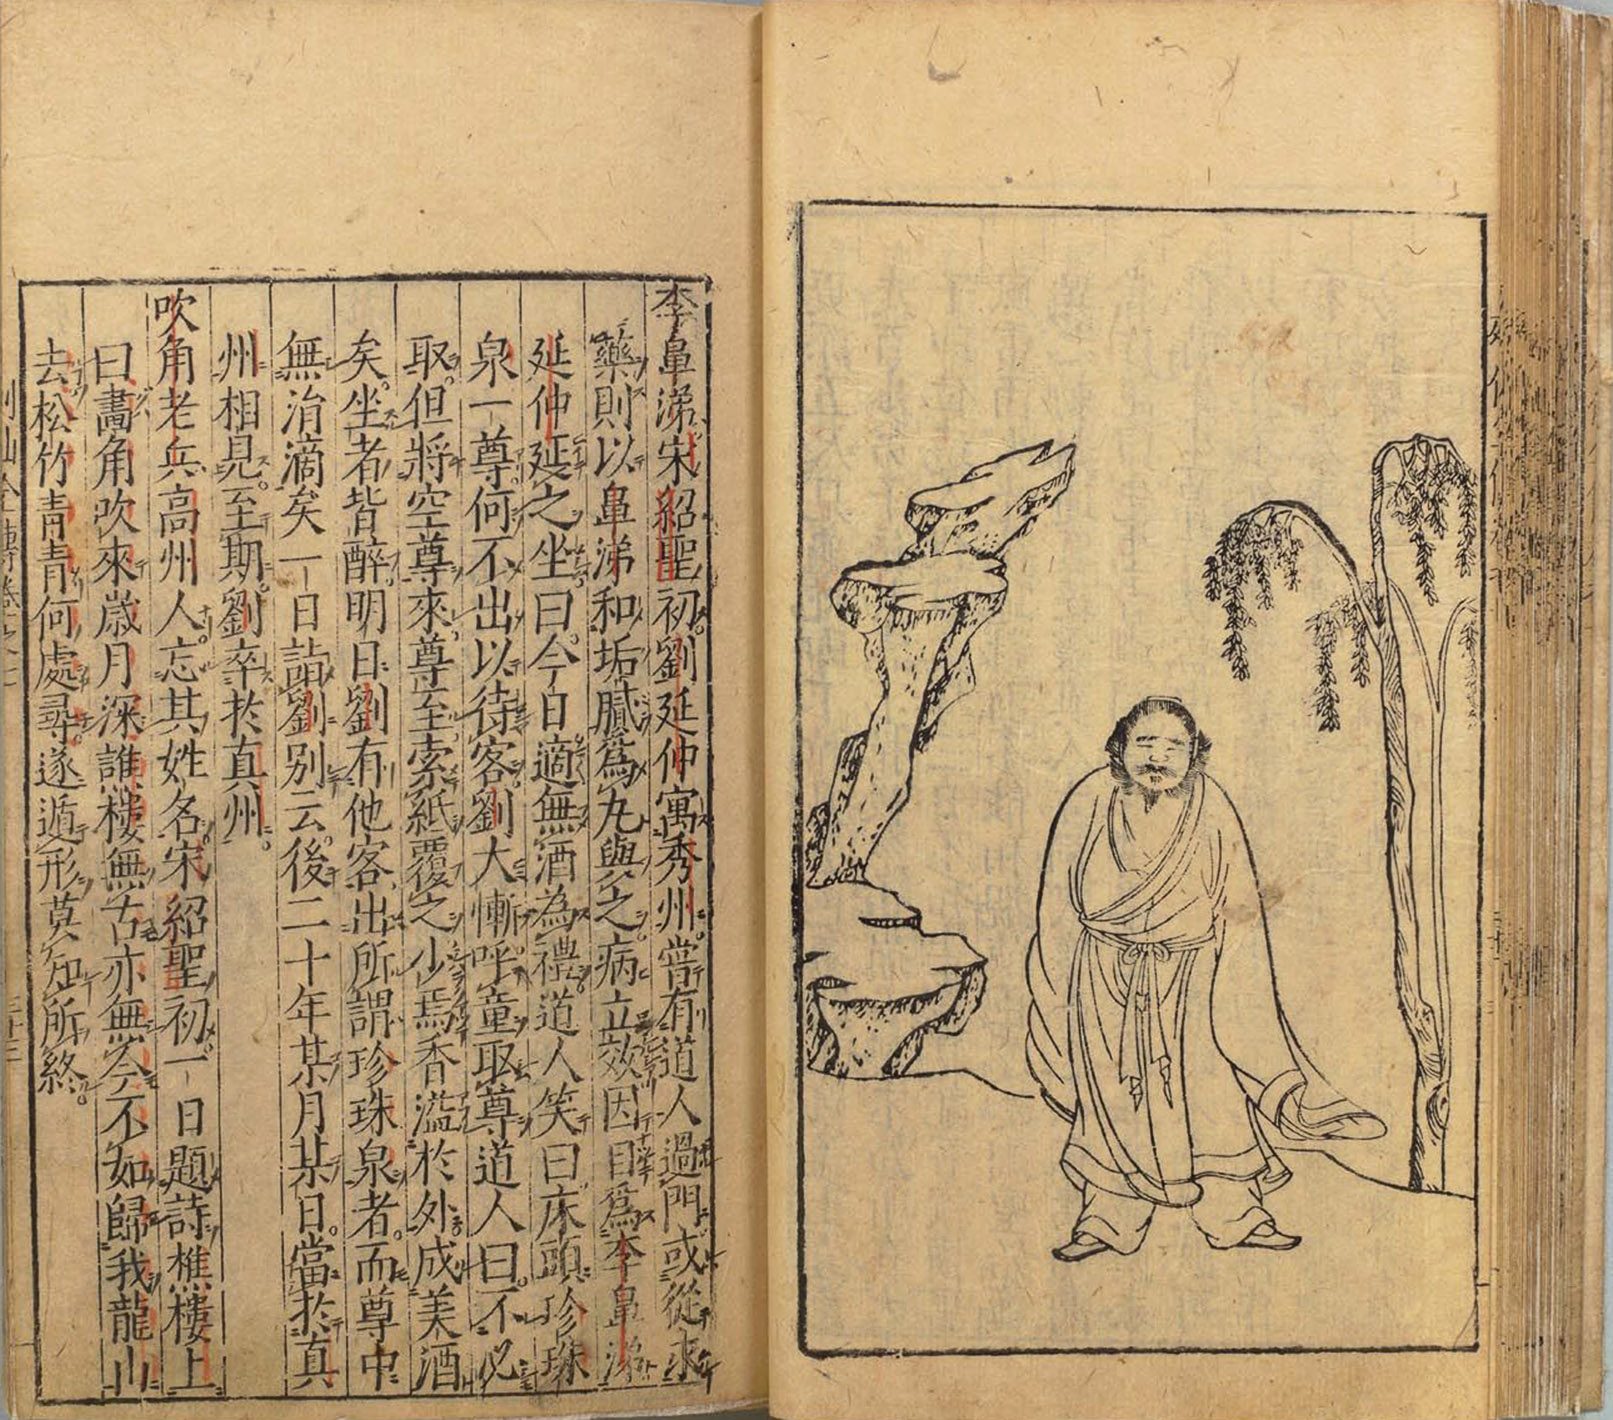 李鼻涕宋紹聖初劉延仲寓秀州嘗有道人過門或從求
藥則以鼻涕和垢膩爲丸與之病立效因目爲李鼻涕
延仲延之坐曰今日適無酒為禮道人笑曰床頭珍珠
泉一尊何不出以待客劉大慚呼童取尊道人曰不必
取但將空尊來尊至索紙覆之少焉香溢於外成美酒
矣坐者皆醉明日劉有他客出所謂珍珠泉者而尊中
無涓滴矣一日詣劉別云後二十年某月某日當於真
州相見至期劉卒於真州
吹角老兵高州人忘其姓名宋紹聖初一日題詩樵樓上
曰畵角吹來歲月深譙樓無古亦無今不如歸我龍山
去松竹青青何處尋遂遁形莫知所終
列仙全傳卷之七